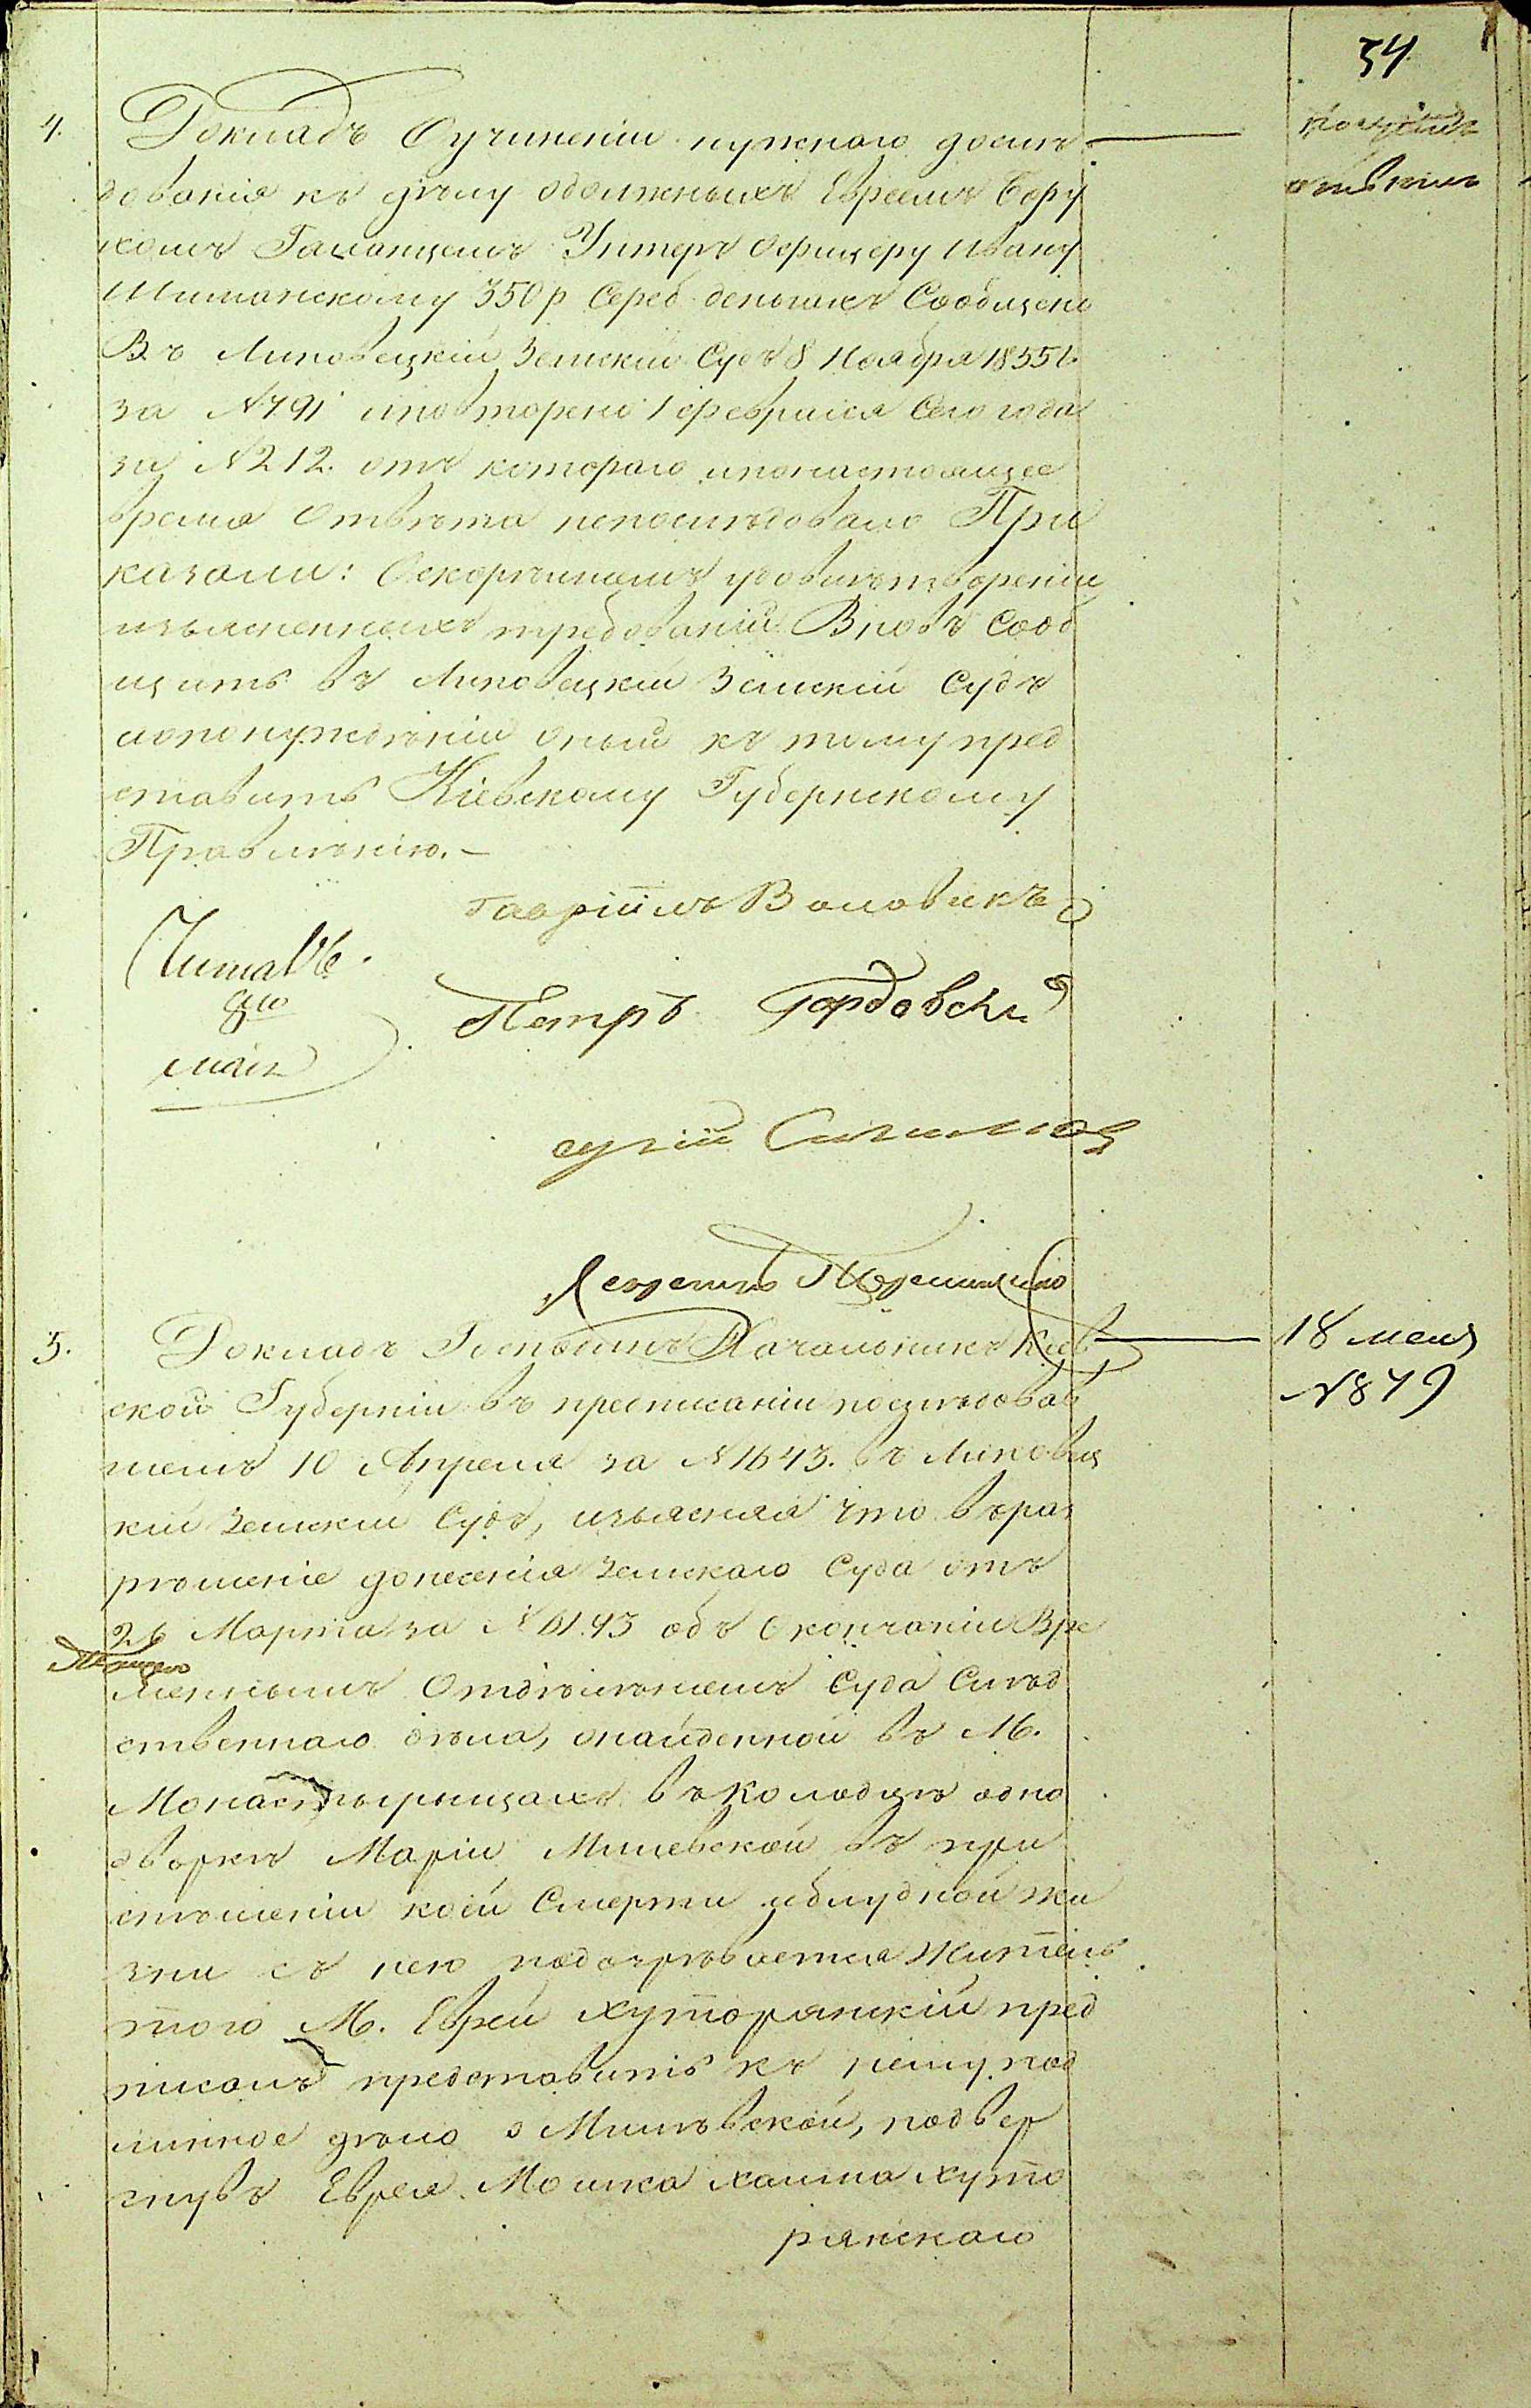 34
4. Докладъ Оучиненіи нужнаго дослѣ
дованія къ дѣлу одолжныхъ Евреемъ Бору
хомъ Галанцемъ Унтеръ Офицеру Ивану
Шиманскому 350 р Сереб деньгахъ Сообщено
Въ Липовецкій Земскій Судъ 8 Ноября 1855 г.
за N 791 иповторено 1 февраля Сего года
за N 212. отъ котораго ипонастоящее
время Отвѣта непослѣдовало При
казали: Оскорѣишемъ удовлѣтвореніи
изъясненныхъ требованій Вновъ Сооб
щить въ Липовецкій Земскій Судъ
опонужденіи оный къ тому пред
ставить Кіевскому Губернскому
Правленію.
Гавріилъ Воловикъ
Читалъ
Петръ Гордовскій
мая
5. Докладъ Господинъ Начальникъ Кіев
ской Губерніи въ предписаніи послѣдовав
шемъ 10 Апреля за N 1643. въ Липовец
кій Земскій Судъ, изъясняя что въраз
рѣшеніе донесенія Земскаго Суда отъ
26 Марта за N 6143 объ Окончаніи Вре
меннымъ Отдѣленіемъ Суда Слѣд
ственнаго дѣла, онайденной въ М.
Монастырищахъ въколодцѣ одно
дворкѣ Маріи Мишевской въ при
чтошеніи коей Смерти иблудной жи
зни съ нею подозрѣвается житель
того М. Еврей Хуторянскій пред
писалъ представить къ нему под
линное дѣло о Мишѣвской, подвер
гнувъ Еврея Мошка Хаима Хуто
рянскаго
18 мая
N 879